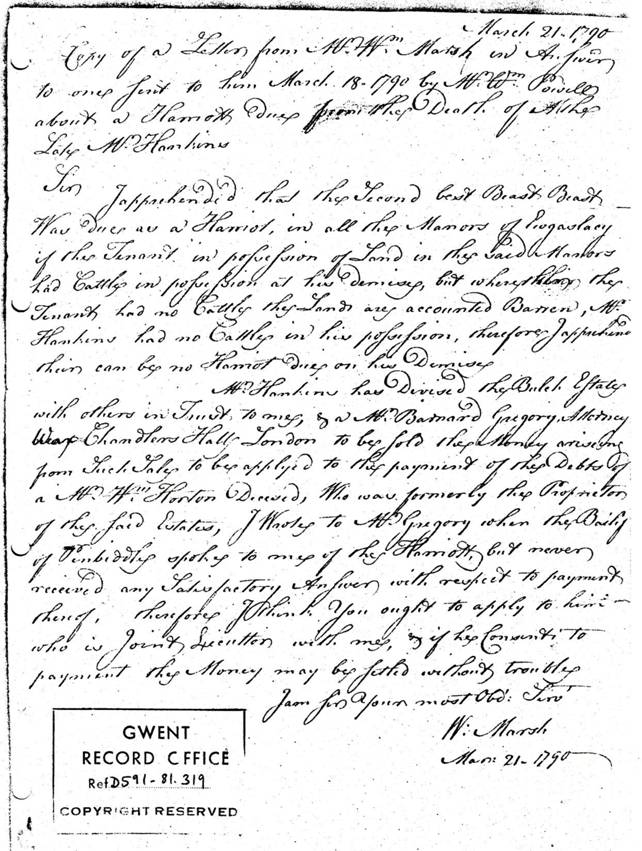 March 21-1790
Copy of a Letter from Mr. Wm. Marsh in Answer
to one sent to him March 18-1790 by Mr. Wm. Powell
about a Harriott due from the Death of
Late Mr. Hankins
Sir I apprehended that the Second best Beast Beast
Was due as a Harriot, in all the Manors of
if the Tenant in possession of Land in the said Manors
had Cattle in possession at his Demise, but where the
Tenant had no Cattle the Lands are accounted Barren, Mr.
Hankins had no Cattle in his possession, therefore I apprehend
their can be no Harriot due on his Demise
Mr. Hankins has Divised the Bulch Estate
with others in Trust to me, & a Mr. Barnard Gregory Attorney
Wax Chandlers Hall London to be sold the Money arising
from Such Sale to be applyed to the payment of the Debts of
a Mr. Wm. Horton Decised, Who was formerly the Proprietor
of the said Estates, I Wrote to Mr. Gregory when the Bailif
of Penbiddle spoke to me of the Harriott, but never
received any Satisfactory Answer with respect to payment
thereof, therefore I think You ought to apply to him
who is Joint Executtor with me, & if he Consents to
payment the Money may be setled without trouble
I am Sir Your most Obd: Serv
W: Marsh
Mar: 21-1790
GWENT
RECORD OFFICE
Ref D591-81.319
COPYRIGHT RESERVED